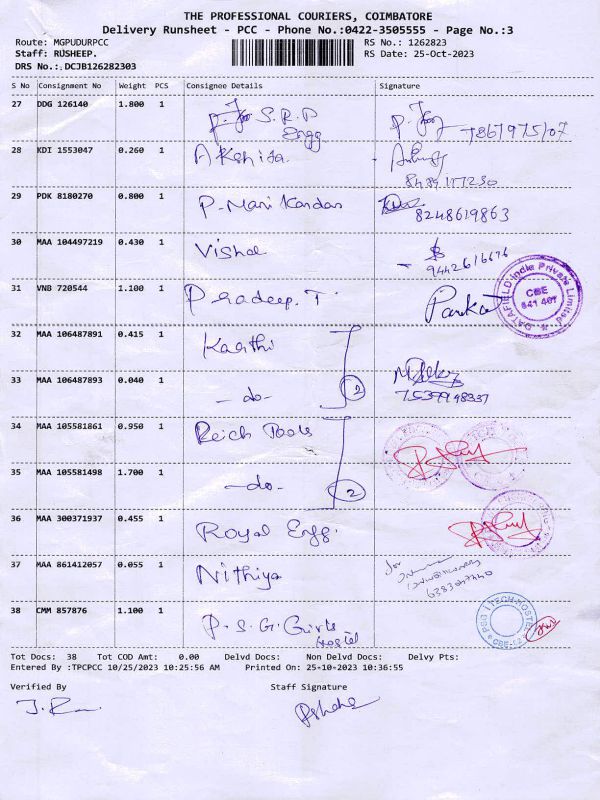 THE PROFESSIONAL COURIERS, COIMBATORE
Delivery Runsheet - PCC - Phone No.:0422-3505555 - Page No.:3
Route: MGPUDURPCC RS No.: 1262823
Staff: RUSHEEP. RS Date: 25-Oct-2023
DRS No.:.DCJB126282303
S No Consignment No Weight PCS Consignee Details Signature
27 DDG 126140 1.800 1 S.R.P
Engg
28 KDI 1553047 0.260 1 Akshita
29 PDK 8180270 0.800 1 P. Mani Kandan
8248619863
30 MAA 104497219 0.430 1 Vishal
9442616676
31 VNB 720544 1.100 1 Pradeep. T
DATAFIELD India Private Limited
CBE
641 407
32 MAA 106487891 0.415 1 Kaarthi
33 MAA 106487893 0.040 1 -do- 2
34 MAA 105581861 0.950 1 Reich Tools
35 MAA 105581498 1.700 1 -do- 2
36 MAA 300371937 0.455 1 Royal Engg.
37 MAA 861412057 0.055 1 Nithiya
38 CMM 857876 1.100 1 P.S.G. Girls
Hostel
Tot Docs: 38 Tot COD Amt: 0.00 Delvd Docs: Non Delvd Docs: Delvy Pts:
Entered By :TPCPCC 10/25/2023 10:25:56 AM Printed On: 25-10-2023 10:36:55
Verified By Staff Signature